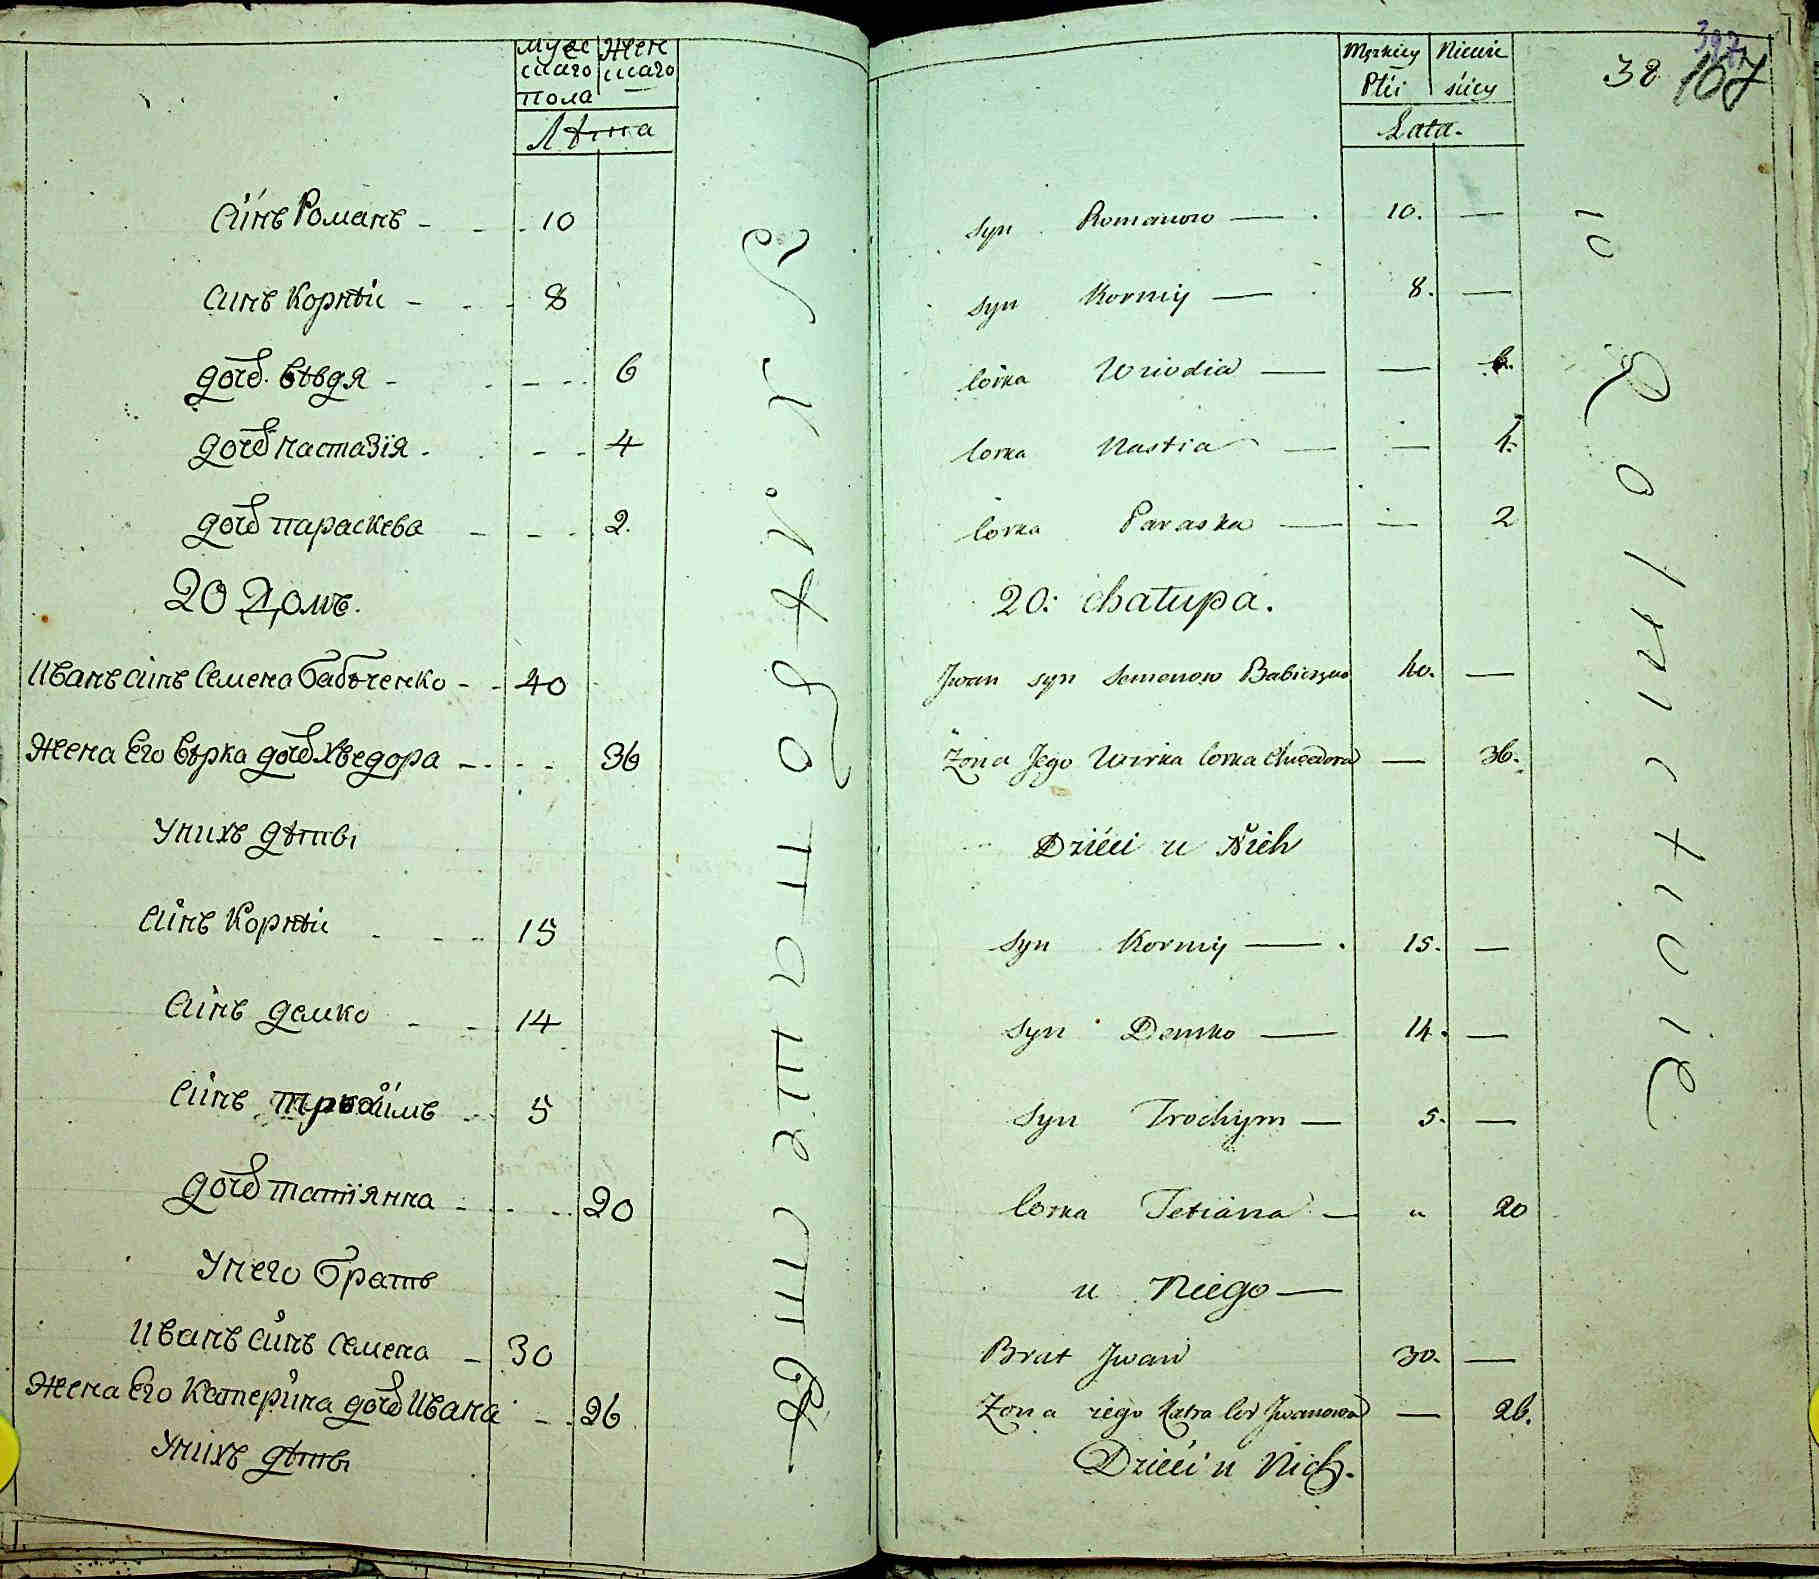 Муже Жен
скаго скаго
Пола
Лѣта
Си́нъ Романъ - - - 10
Синъ Корнѣй - - - 8
дочъ Вѣвдя - - - - 6
дочъ настазія - - - - 4
дочъ параскева - - - - 2.
20 Домъ.
Иванъ синъ Семена Бабѣченко - - 40
Жена Его Вѣрка дочъ Хведора - - - - 36
Унихъ дѣты
Синъ Корнѣй - - - 15
Синъ демко - - - 14
Синъ трохимъ - - 5
дочъ татіянна - - - - 20
Унего братъ
Иванъ синъ Семена - 30
Жена Его Катерина дочъ Ивана - - 26
Унихъ дѣты
въ хлѣбопашествѣ
38 107
Męzkiey Niewie
Płći sciey
Lata.
syn Romanow — 10. —
syn Korniy — 8. —
Corka Wiwdia — — 6.
Corka Nastia — — 4.
Corka Paraska — — 2
20: Chatupa.
Jwan syn Semenow Babiczenko 40. —
Żona Jego Wirka Corka Chwedora — 36.
Dzieci u Nich
syn Korniy — 15. —
syn Demko — 14. —
syn Trochym — 5. —
Corka Tetiana — " 20
u Niego —
Brat Jwan 30. —
Zona iego Katra Cor Jwanowa — 26.
Dzieci u Nich.
w Rolnictwie